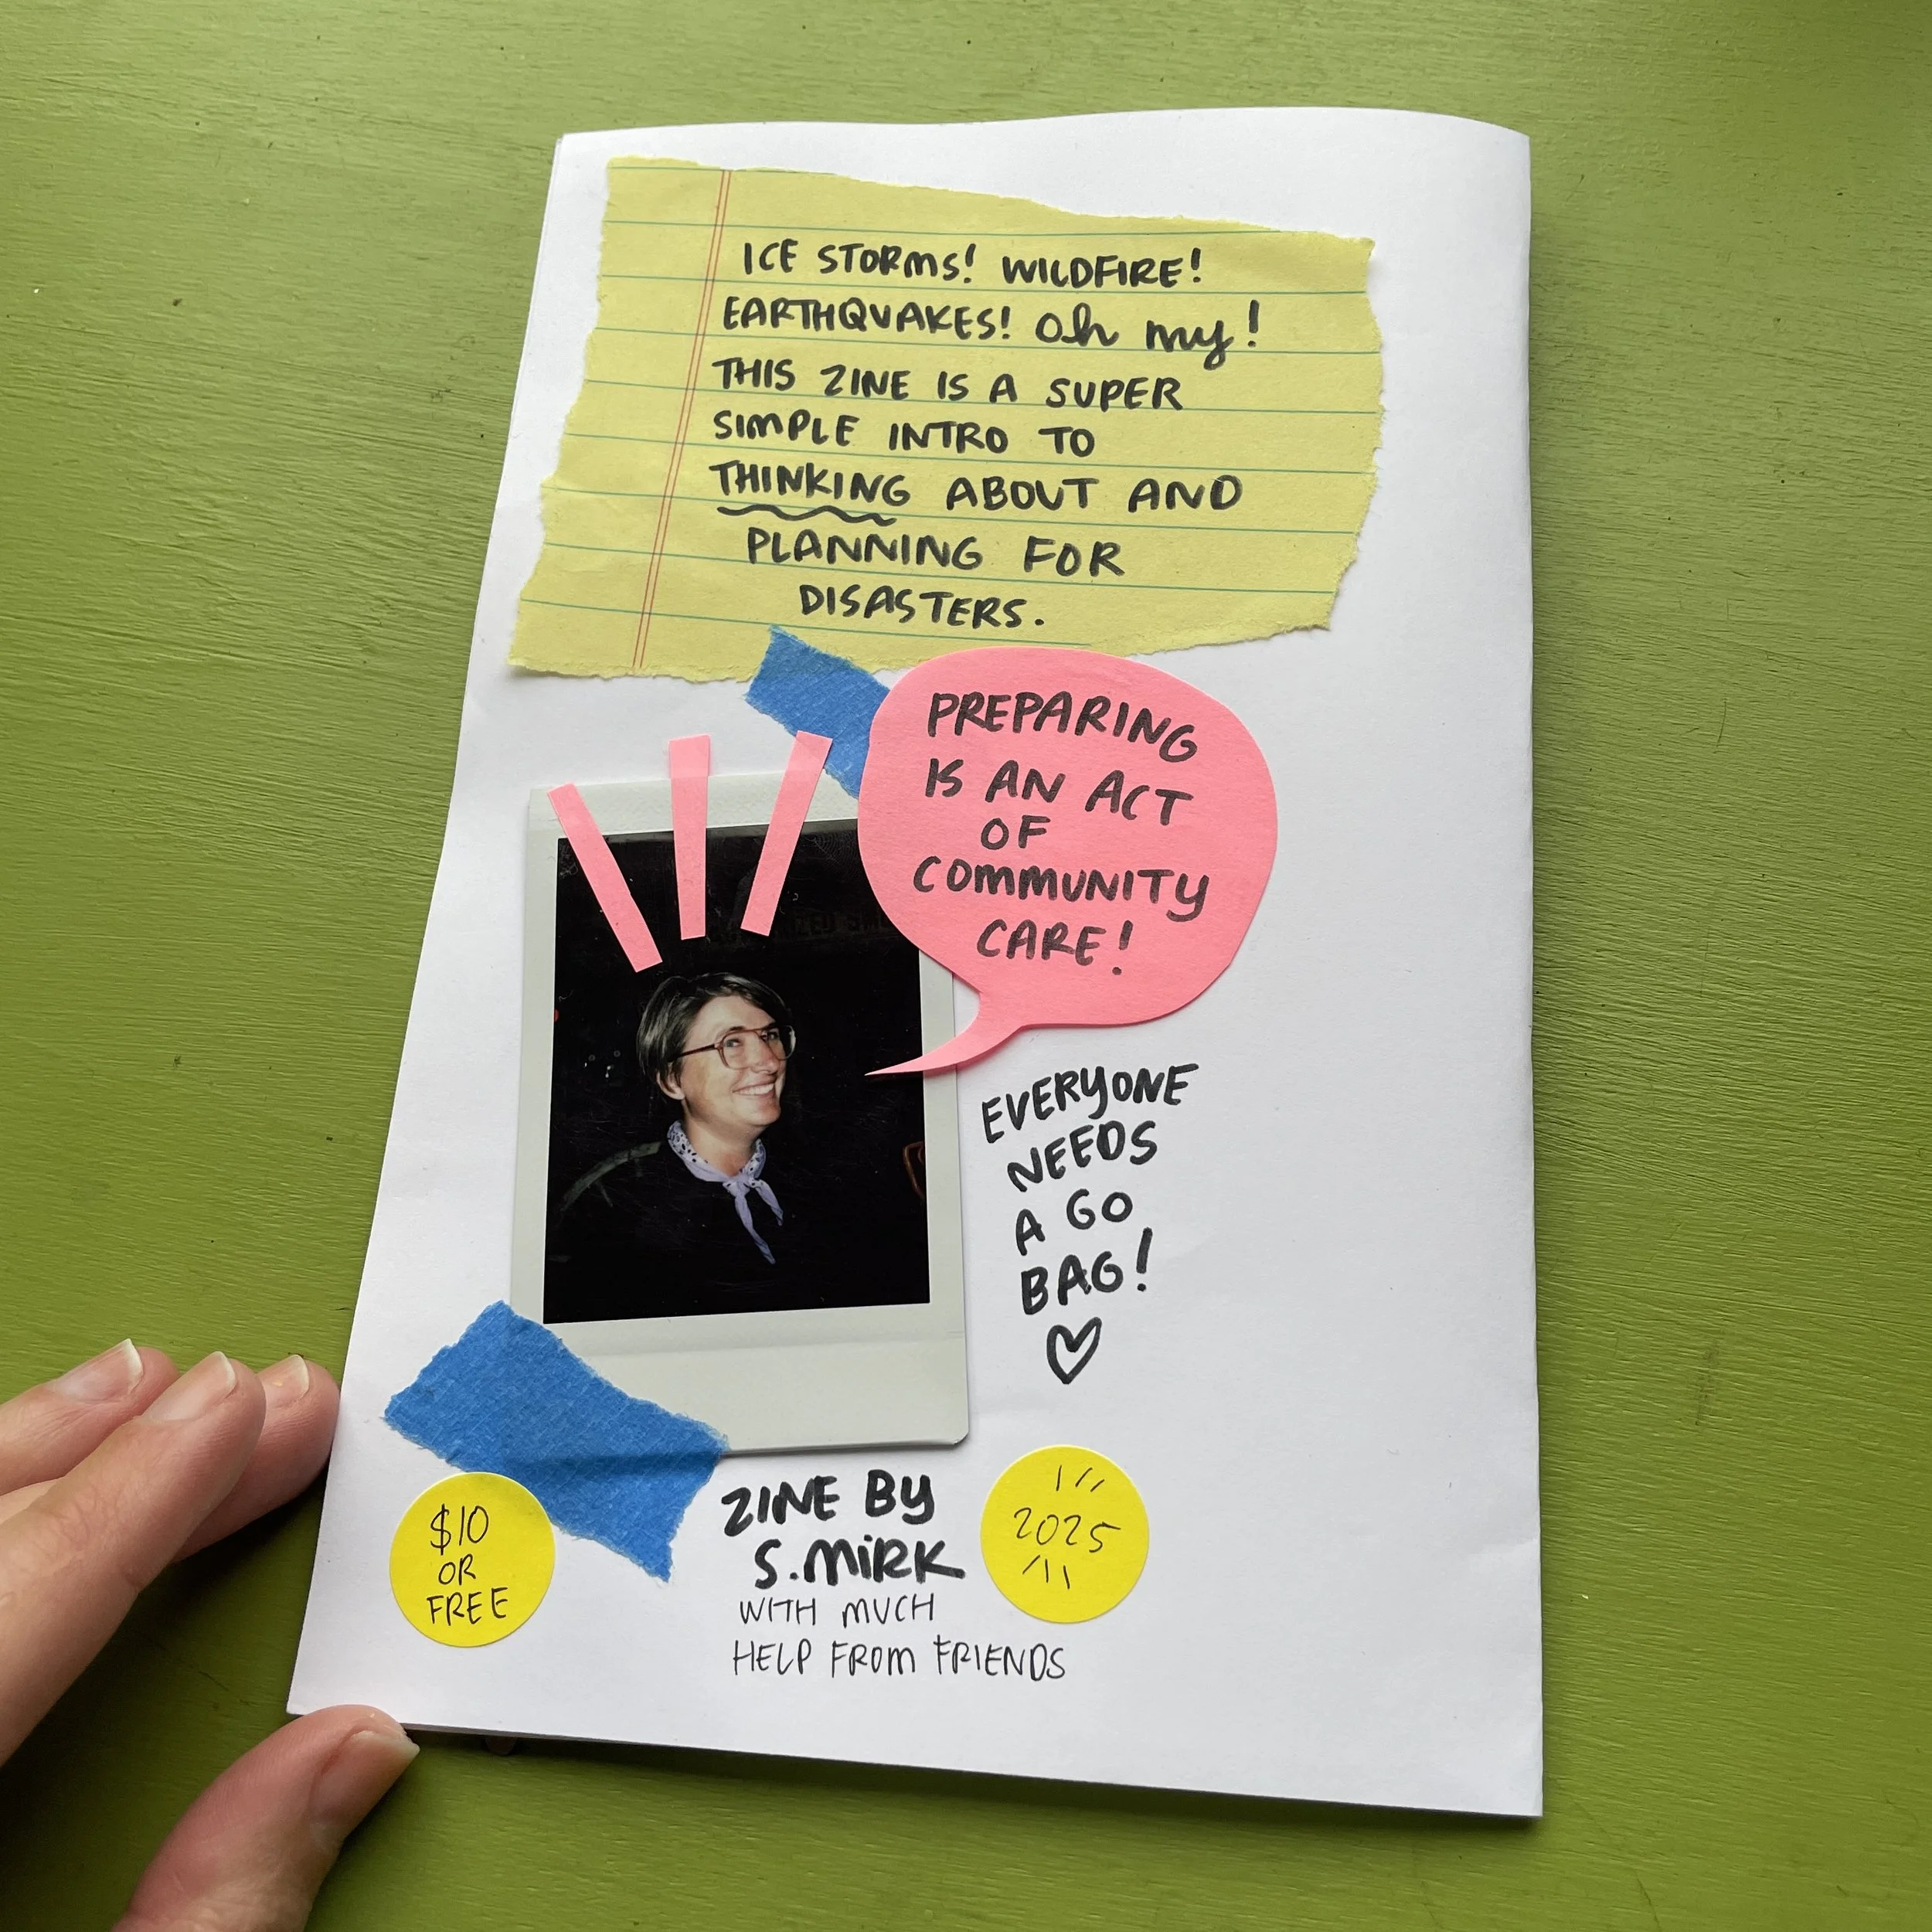 ICE STORMS! WILDFIRE!
EARTHQUAKES! Oh my!
THIS ZINE IS A SUPER
SIMPLE INTRO TO
THINKING ABOUT AND
PLANNING FOR
DISASTERS.
PREPARING
IS AN ACT
OF
COMMUNITY
CARE!
EVERYONE
NEEDS
A GO
BAG!
$10
OR
FREE
ZINE BY
S. MIRK
WITH MUCH
HELP FROM FRIENDS
2025